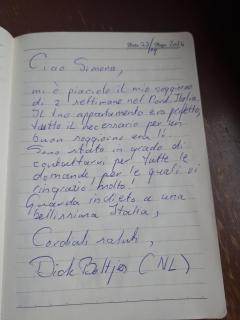 Ciao Simona,
mi è piaciuto il mio soggiorno
di 2 settimane nel Nord Italia.
Il tuo appartamento era perfetto,
tutto il necessario per un
buon soggiorno era lì!
Sono stato in grado di
consultarvi per tutte le
domande, per le quali vi
ringrazio molto!
Guarda indietro a una
bellissima Italia,
Cordiali saluti,
Dick (NL)